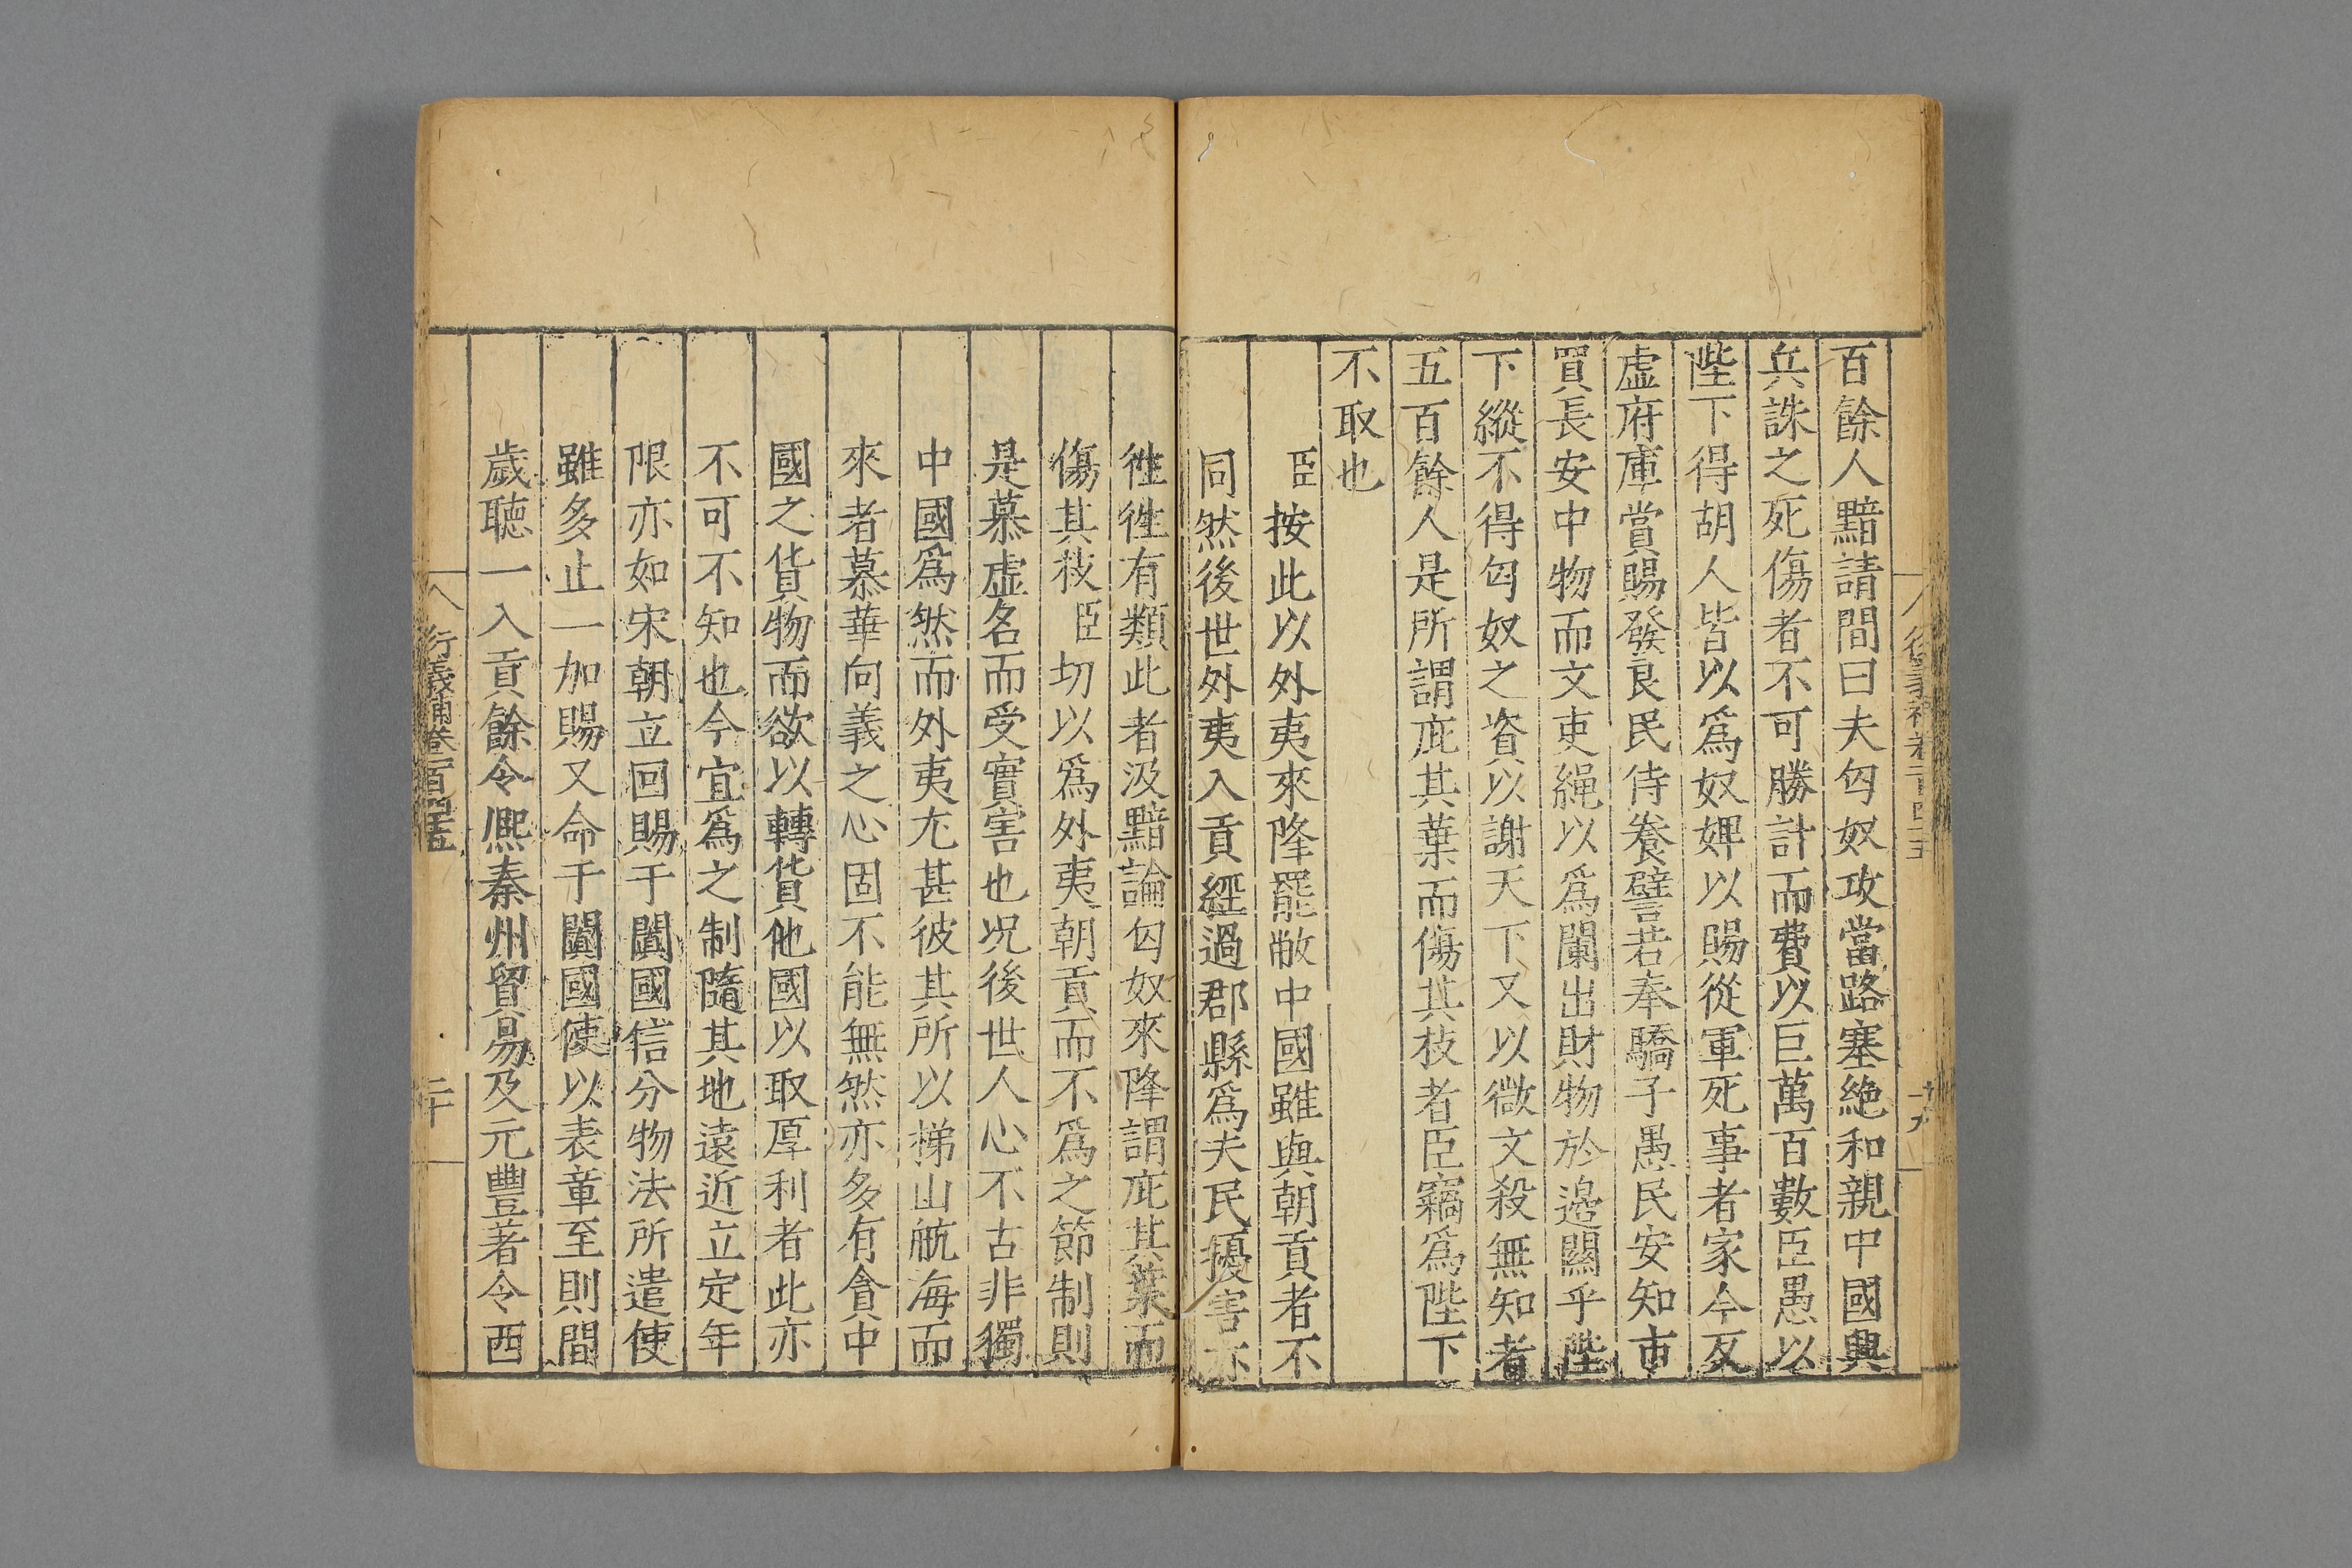 百餘人黯請間曰夫匈奴攻當路塞絶和親中國興
兵誅之死傷者不可勝計而費以巨萬百數臣愚以
陛下得胡人皆以爲奴婢以賜從軍死事者家今反
虛府庫賞賜發良民侍養譬若奉驕子愚民安知市
買長安中物而文吏繩以爲闌出財物於邉關乎陛
下縱不得匈奴之資以謝天下又以微文殺無知者
五百餘人是所謂庇其葉而傷其枝者臣竊爲陛下
不取也
臣按此以外夷來降罷敝中國雖與朝貢者不
同然後世外夷入貢經過郡縣爲夫民擾害亦
徃徃有類此者汲黯論匈奴來降謂庇其葉而
傷其枝臣切以爲外夷朝貢而不爲之節制則
是慕虛名而受實害也况後世人心不古非獨
中國爲然而外夷尤甚彼其所以梯山航海而
來者慕華向義之心固不能無然亦多有貪中
國之貨物而欲以轉貨他國以取厚利者此亦
不可不知也今宜爲之制隨其地遠近立定年
限亦如宋朝立回賜于闐國信分物法所遣使
雖多止一加賜又命于闐國使以表章至則間
歲聽一入貢餘令熈秦州貿易及元豐著令西
衍義補卷一百四十五
二十